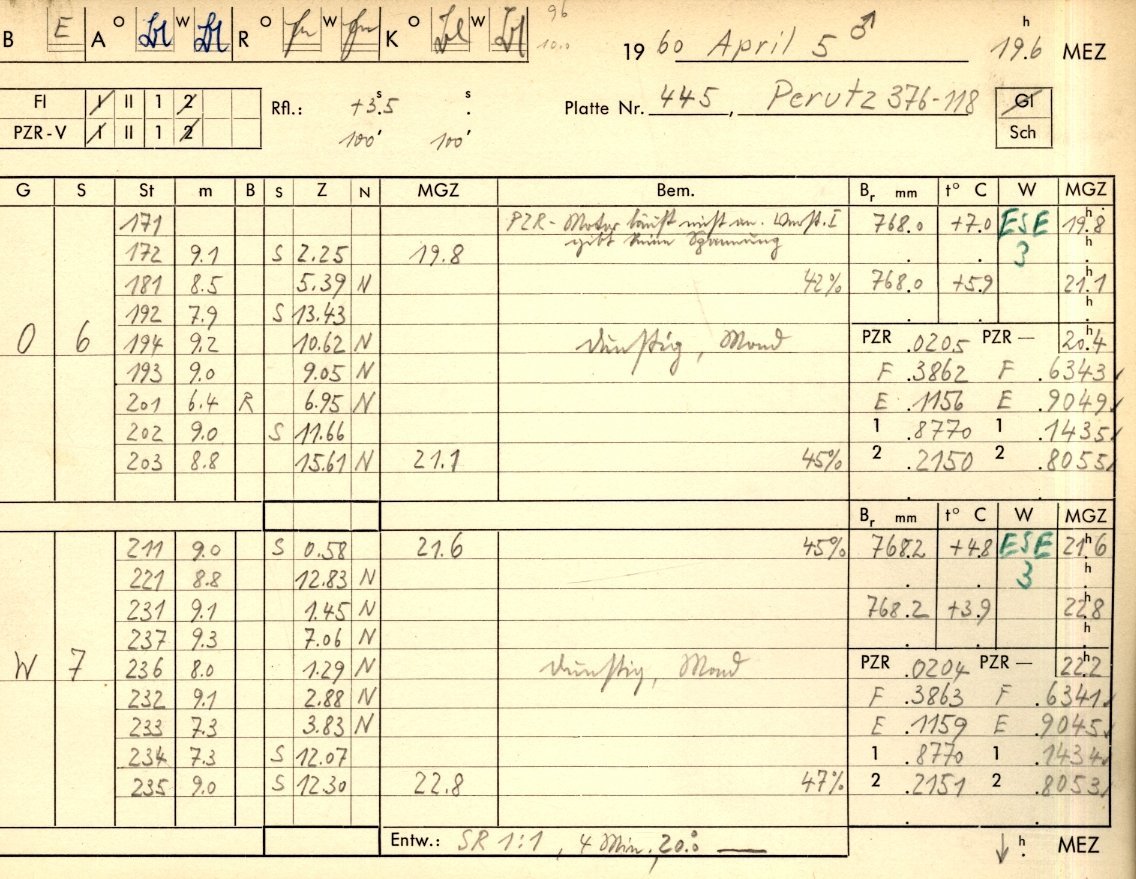 B E A O W R O W K O W 96
10.0
19 60 April 5 ♂ 19.6 h MEZ
FI I II 1 2 Rfl.: +3.5 s s Platte Nr. 445, Perutz 376-118 Gl
PZR-V I II 1 2 100' 100' Sch
G S St m B S Z N MGZ Bem. Br mm t° C W MGZ
171 PZR-Motor läuft nicht an. Verst. I 768.0 +7.0 ESE 19.8 h
172 9.1 S 2.25 19.8 gibt keine Spannung 3 h
181 8.5 5.39 N 42% 768.0 +5.9 21.1
192 7.9 S 13.43 h
O 6 194 9.2 10.62 N dunstig, Mond PZR .0205 PZR— 20.4 h
193 9.0 9.05 N F .3862 F .6343 ✓
201 6.4 R 6.95 N E .1156 E .9049 ✓
202 9.0 S 11.66 1 .8770 1 .1435 ✓
203 8.8 15.61 N 21.1 45% 2 .2150 2 .8055 ✓
Br mm t° C W MGZ
211 9.0 S 0.58 21.6 45% 768.2 +4.8 ESE 21.6 h
221 8.8 12.83 N 3 h
231 9.1 1.45 N 768.2 +3.9 22.8 h
237 9.3 7.06 N h
W 7 236 8.0 1.29 N dunstig, Mond PZR .0204 PZR— 22.2 h
232 9.1 2.88 N F .3863 F .6341 ✓
233 7.3 3.83 N E .1159 E .9045 ✓
234 7.3 S 12.07 1 .8770 1 .1434 ✓
235 9.0 S 12.30 22.8 47% 2 .2151 2 .8053 ✓
Entw.: SR 1:1, 4 Min, 20.0° — ↓ h MEZ